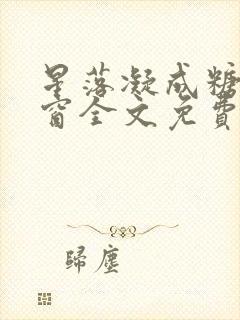 星落凝成糖
窗全文免費
歸塵